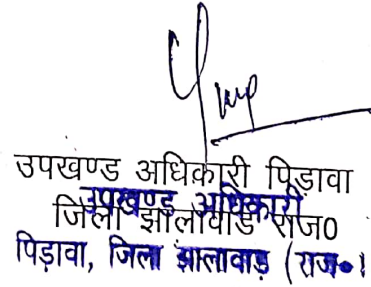 उपखण्ड अधिकारी पिड़ावा
उपखण्ड अधिकारी
जिला झालावाड राज0
पिड़ावा, जिला झालावाड़ (राज०)